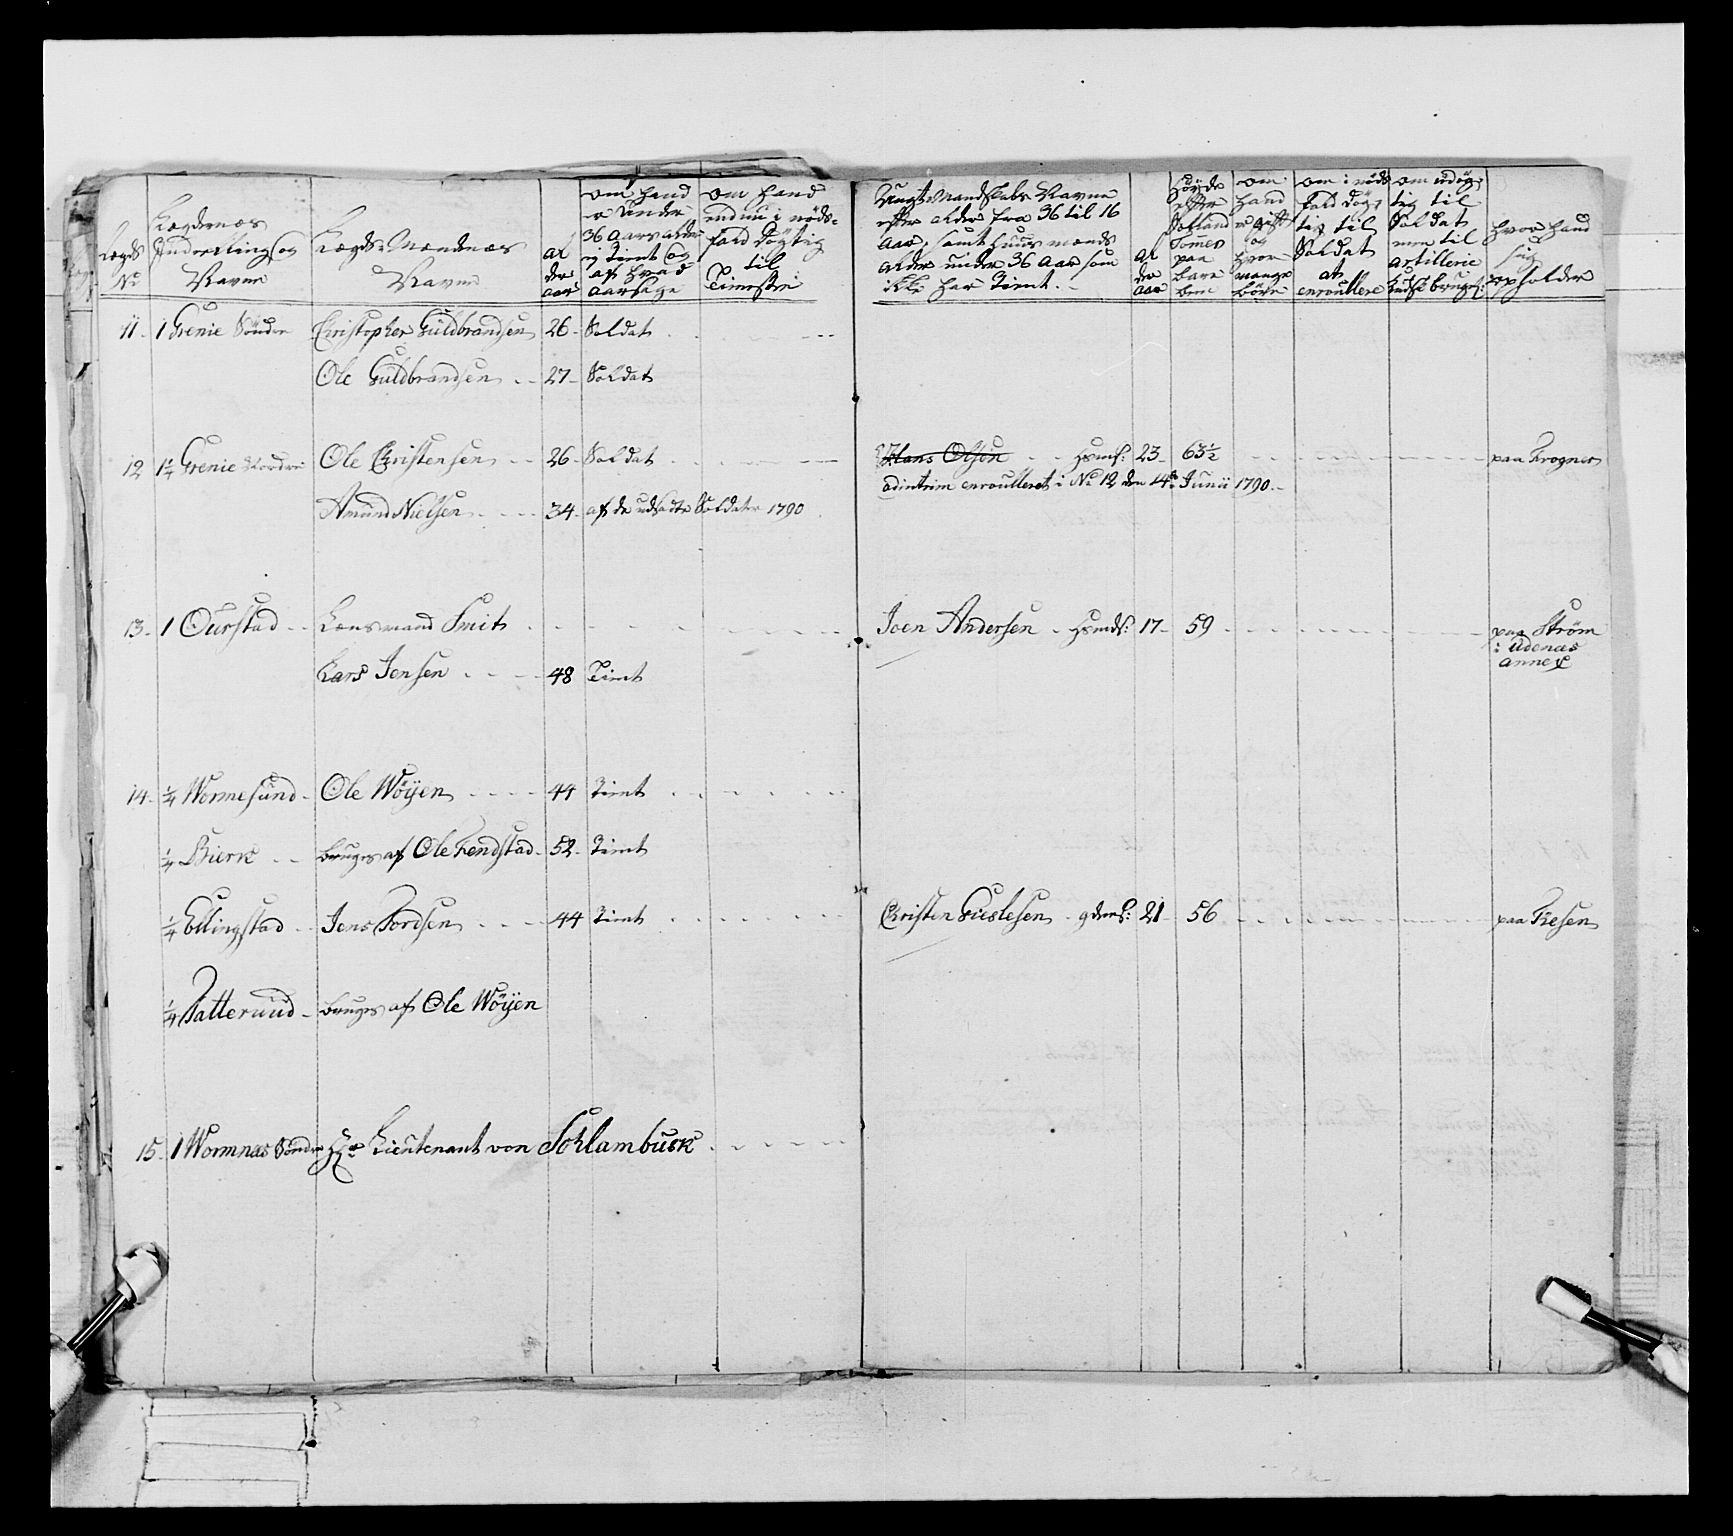 Lægds No
Lægdernes Inddeeling og Navne
Lægds-Mændnes Navne
Al der aar
om hand er under 36 Aars alder ej tient og af hvad aarsage
om hand endnu i nöds- fald dögtig til Tieneste
Ungt Mandskabs Navne efter alder fra 36 til 16 Aar, samt huusmænds alder under 36 Aar som ikke har tient.
Al der aar
höyde efter Tomer paa bare been
om hand er gift og hvor mange börn
om i nöds fald dög- tig til Soldat at enroullere
om udög- tig til Soldat men til artillerie
hvor hand sig opholder
11. 1 Grenie Söndre Christopher Guldbrandsen 26 Soldat
Ole Guldbrandsen 27 Soldat
12 1¼ Grenie Nordre Ole Christensen 26 Soldat Hans Olsön 23 63½ paa Frogner
adintrim enroulleret i No 12 den 14de Junii 1790
Amund Nielsen 34 af de udsadte Soldater 1790
13. 1 Ourstad Lænsmand Smit Joen Andersen 17 59 paa Ström
i Udenæs
annex
Lars Jensen 48 Tient
14. ¼ Wormesund Ole Wöyen 44 Tient
¼ Bierk bruges af Ole Fendstad 52 Tient
¼ Ellingstad Jens Tordsen 44 Tient Christen Gieslesen 21 56 paa Freseng
¼ Tatterund bruges af Ole Wöyen
15. 1 Wormnæs Söndre Hr Lieutenant von Schlambusk